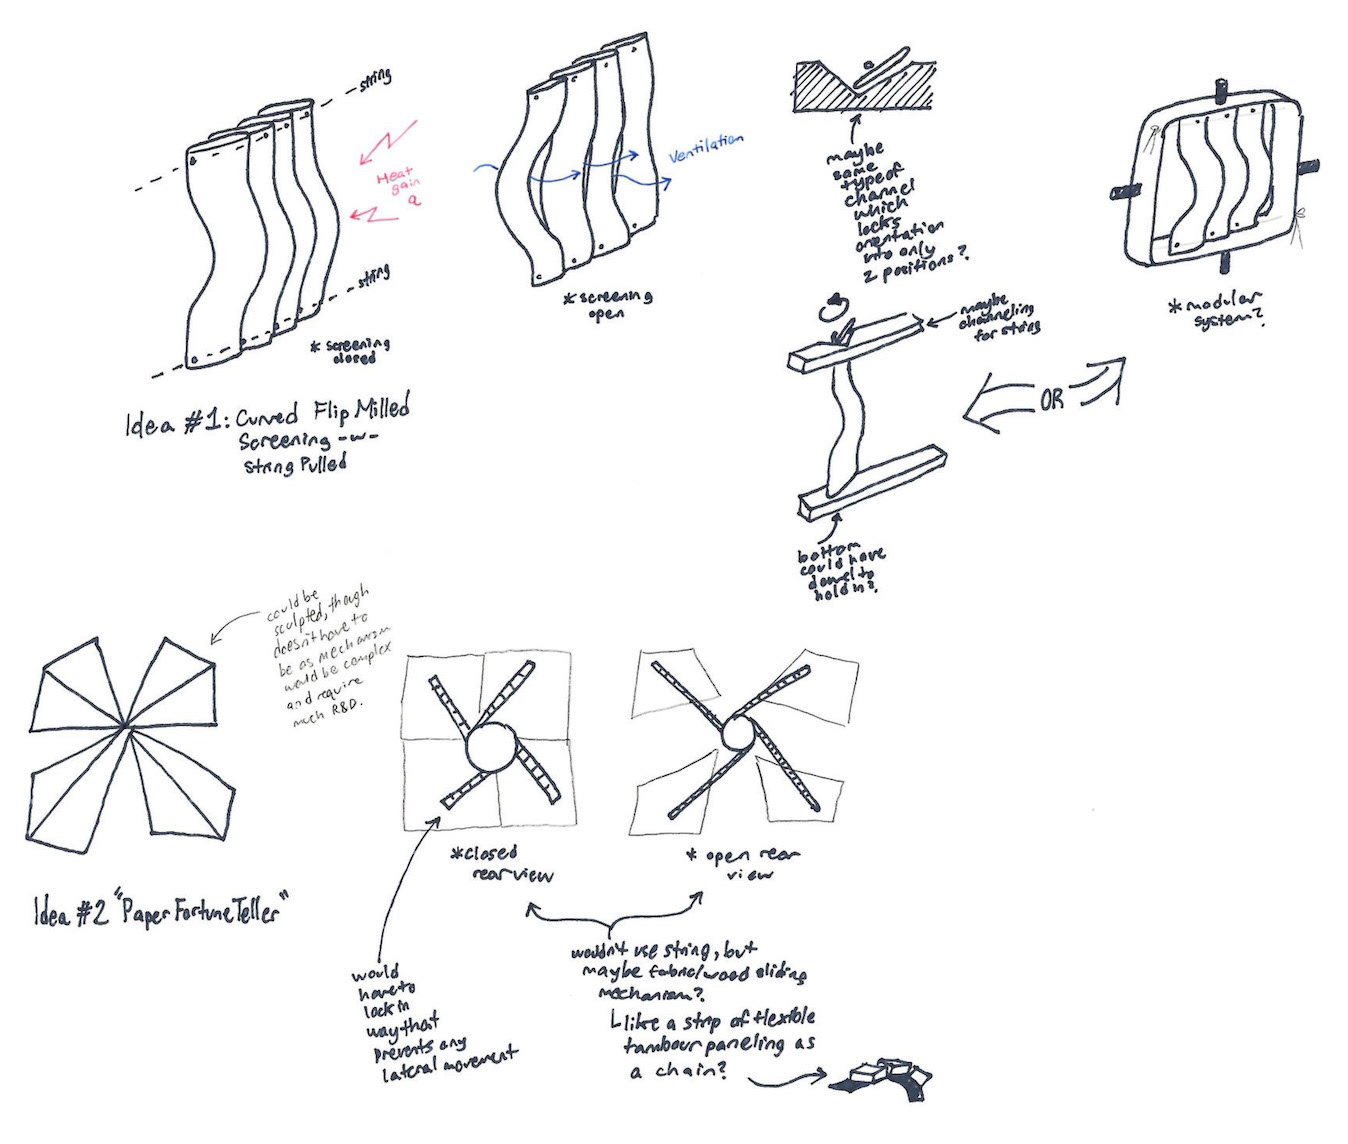 string
Heat
gain
Q
string
* screening
closed
Idea #1: Curved Flip Milled
Screening -w-
String Pulled
Ventilation
* screening
open
maybe
some
type of
channel
which
locks
orientation
into only
2 positions?
maybe
channeling
for string
bottom
could have
dowel to
hold in?
OR
* modular
system?
could be
sculpted, though
doesn't have to
be as mechanism
would be complex
and require
much R&D.
Idea #2 "Paper Fortune Teller"
* closed
rear view
* open rear
view
would
have to
lock in
way that
prevents any
lateral movement
wouldn't use string, but
maybe fabric/wood sliding
mechanism?
like a strip of flexible
tambour paneling as
a chain?